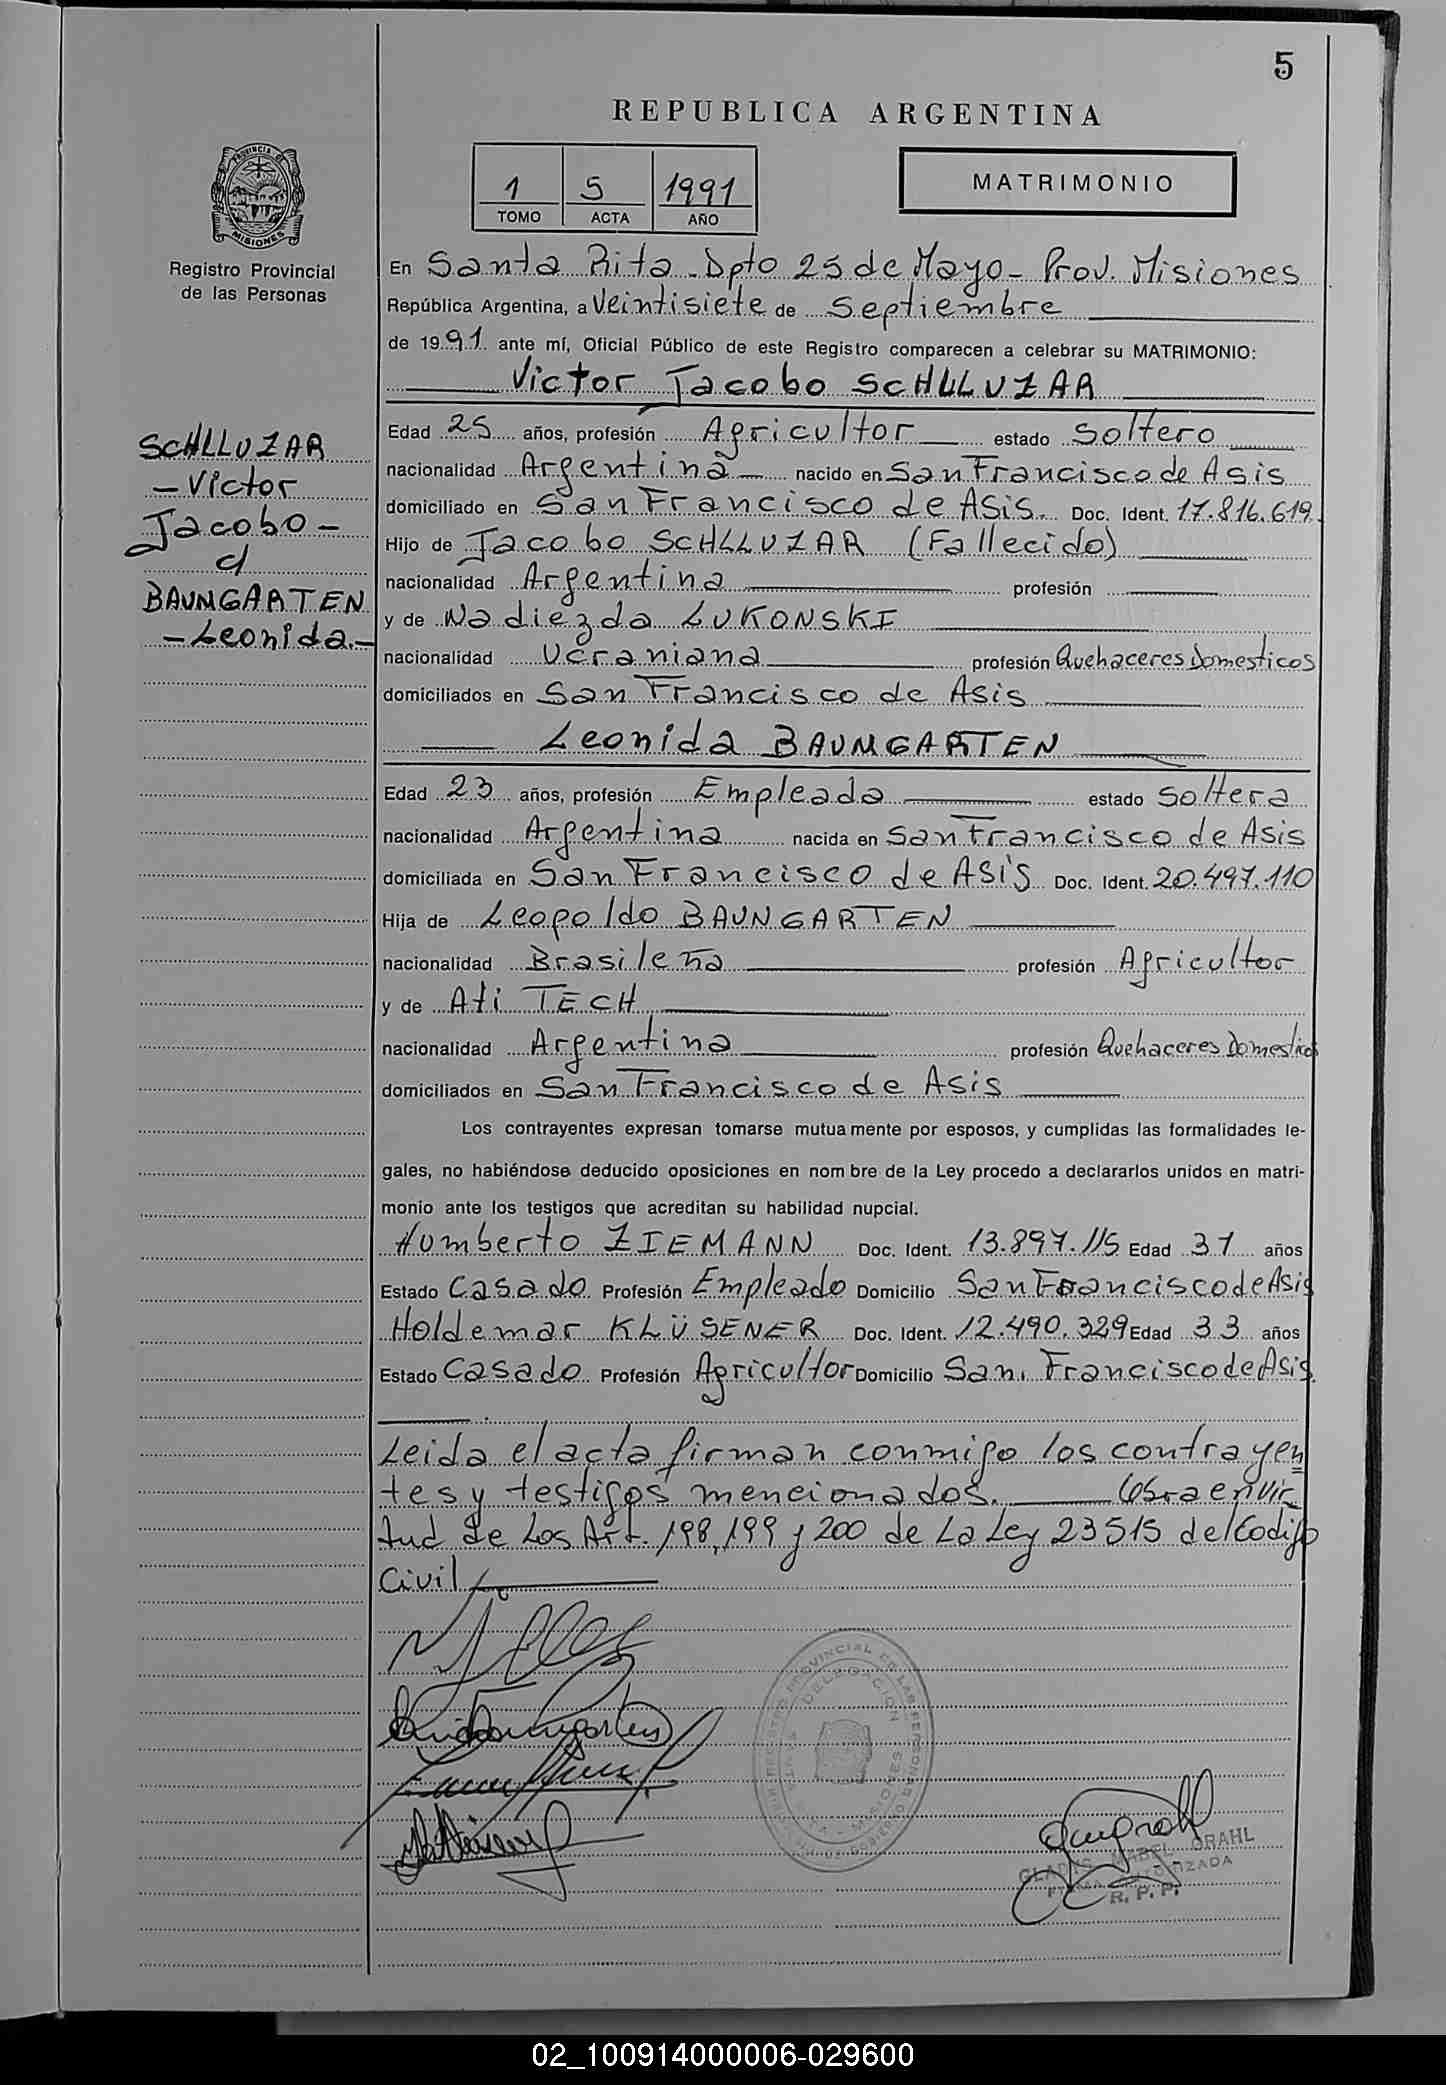 5
REPUBLICA ARGENTINA
1 5 1991
TOMO ACTA AÑO
MATRIMONIO
PROVINCIA DE
MISIONES
Registro Provincial
de las Personas
En Santa Rita Dpto 25 de Mayo - Prov. Misiones
República Argentina, a Veintisiete de Septiembre
de 1991 ante mí, Oficial Público de este Registro comparecen a celebrar su MATRIMONIO:
Victor Jacobo SCHLLUZAR
SCHLLUZAR
- Victor
Jacobo -
c/
BAUMGARTEN
- Leonida. -
Edad 25 años, profesión Agricultor estado Soltero
nacionalidad Argentina nacido en San Francisco de Asis
domiciliado en San Francisco de Asis. Doc. Ident. 17.816.619.
Hijo de Jacobo SCHLLUZAR (Fallecido)
nacionalidad Argentina profesión
y de Nadiezda LUKONSKI
nacionalidad Ucraniana profesión Quehaceres Domesticos
domiciliados en San Francisco de Asis
Leonida BAUMGARTEN
Edad 23 años, profesión Empleada estado Soltera
nacionalidad Argentina nacida en San Francisco de Asis
domiciliada en San Francisco de Asis Doc. Ident. 20.497.110
Hija de Leopoldo BAUNGARTEN
nacionalidad Brasileña profesión Agricultor
y de Ati TECH
nacionalidad Argentina profesión Quehaceres Domestico
domiciliados en San Francisco de Asis
Los contrayentes expresan tomarse mutuamente por esposos, y cumplidas las formalidades le-
gales, no habiéndose deducido oposiciones en nombre de la Ley procedo a declararlos unidos en matri-
monio ante los testigos que acreditan su habilidad nupcial.
Humberto ZIEMANN Doc. Ident. 13.897.115 Edad 31 años
Estado Casado Profesión Empleado Domicilio San Francisco de Asis
Holdemar KLÜSENER Doc. Ident. 12.490.329 Edad 33 años
Estado Casado Profesión Agricultor Domicilio San Francisco de Asis.
Leida el acta firman conmigo los contrayen
tes y testigos mencionados. Obra en vir
tud de Los Art. 198, 199 y 200 de La Ley 23515 del Codigo
Civil
GLADYS MABEL GRAHL
FIRMA AUTORIZADA
R. P. P.
02_100914000006-029600